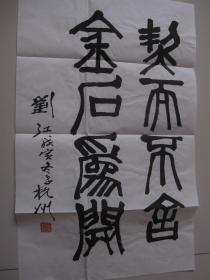 契而不舍
金石爲開
劉江戊寅冬于杭州